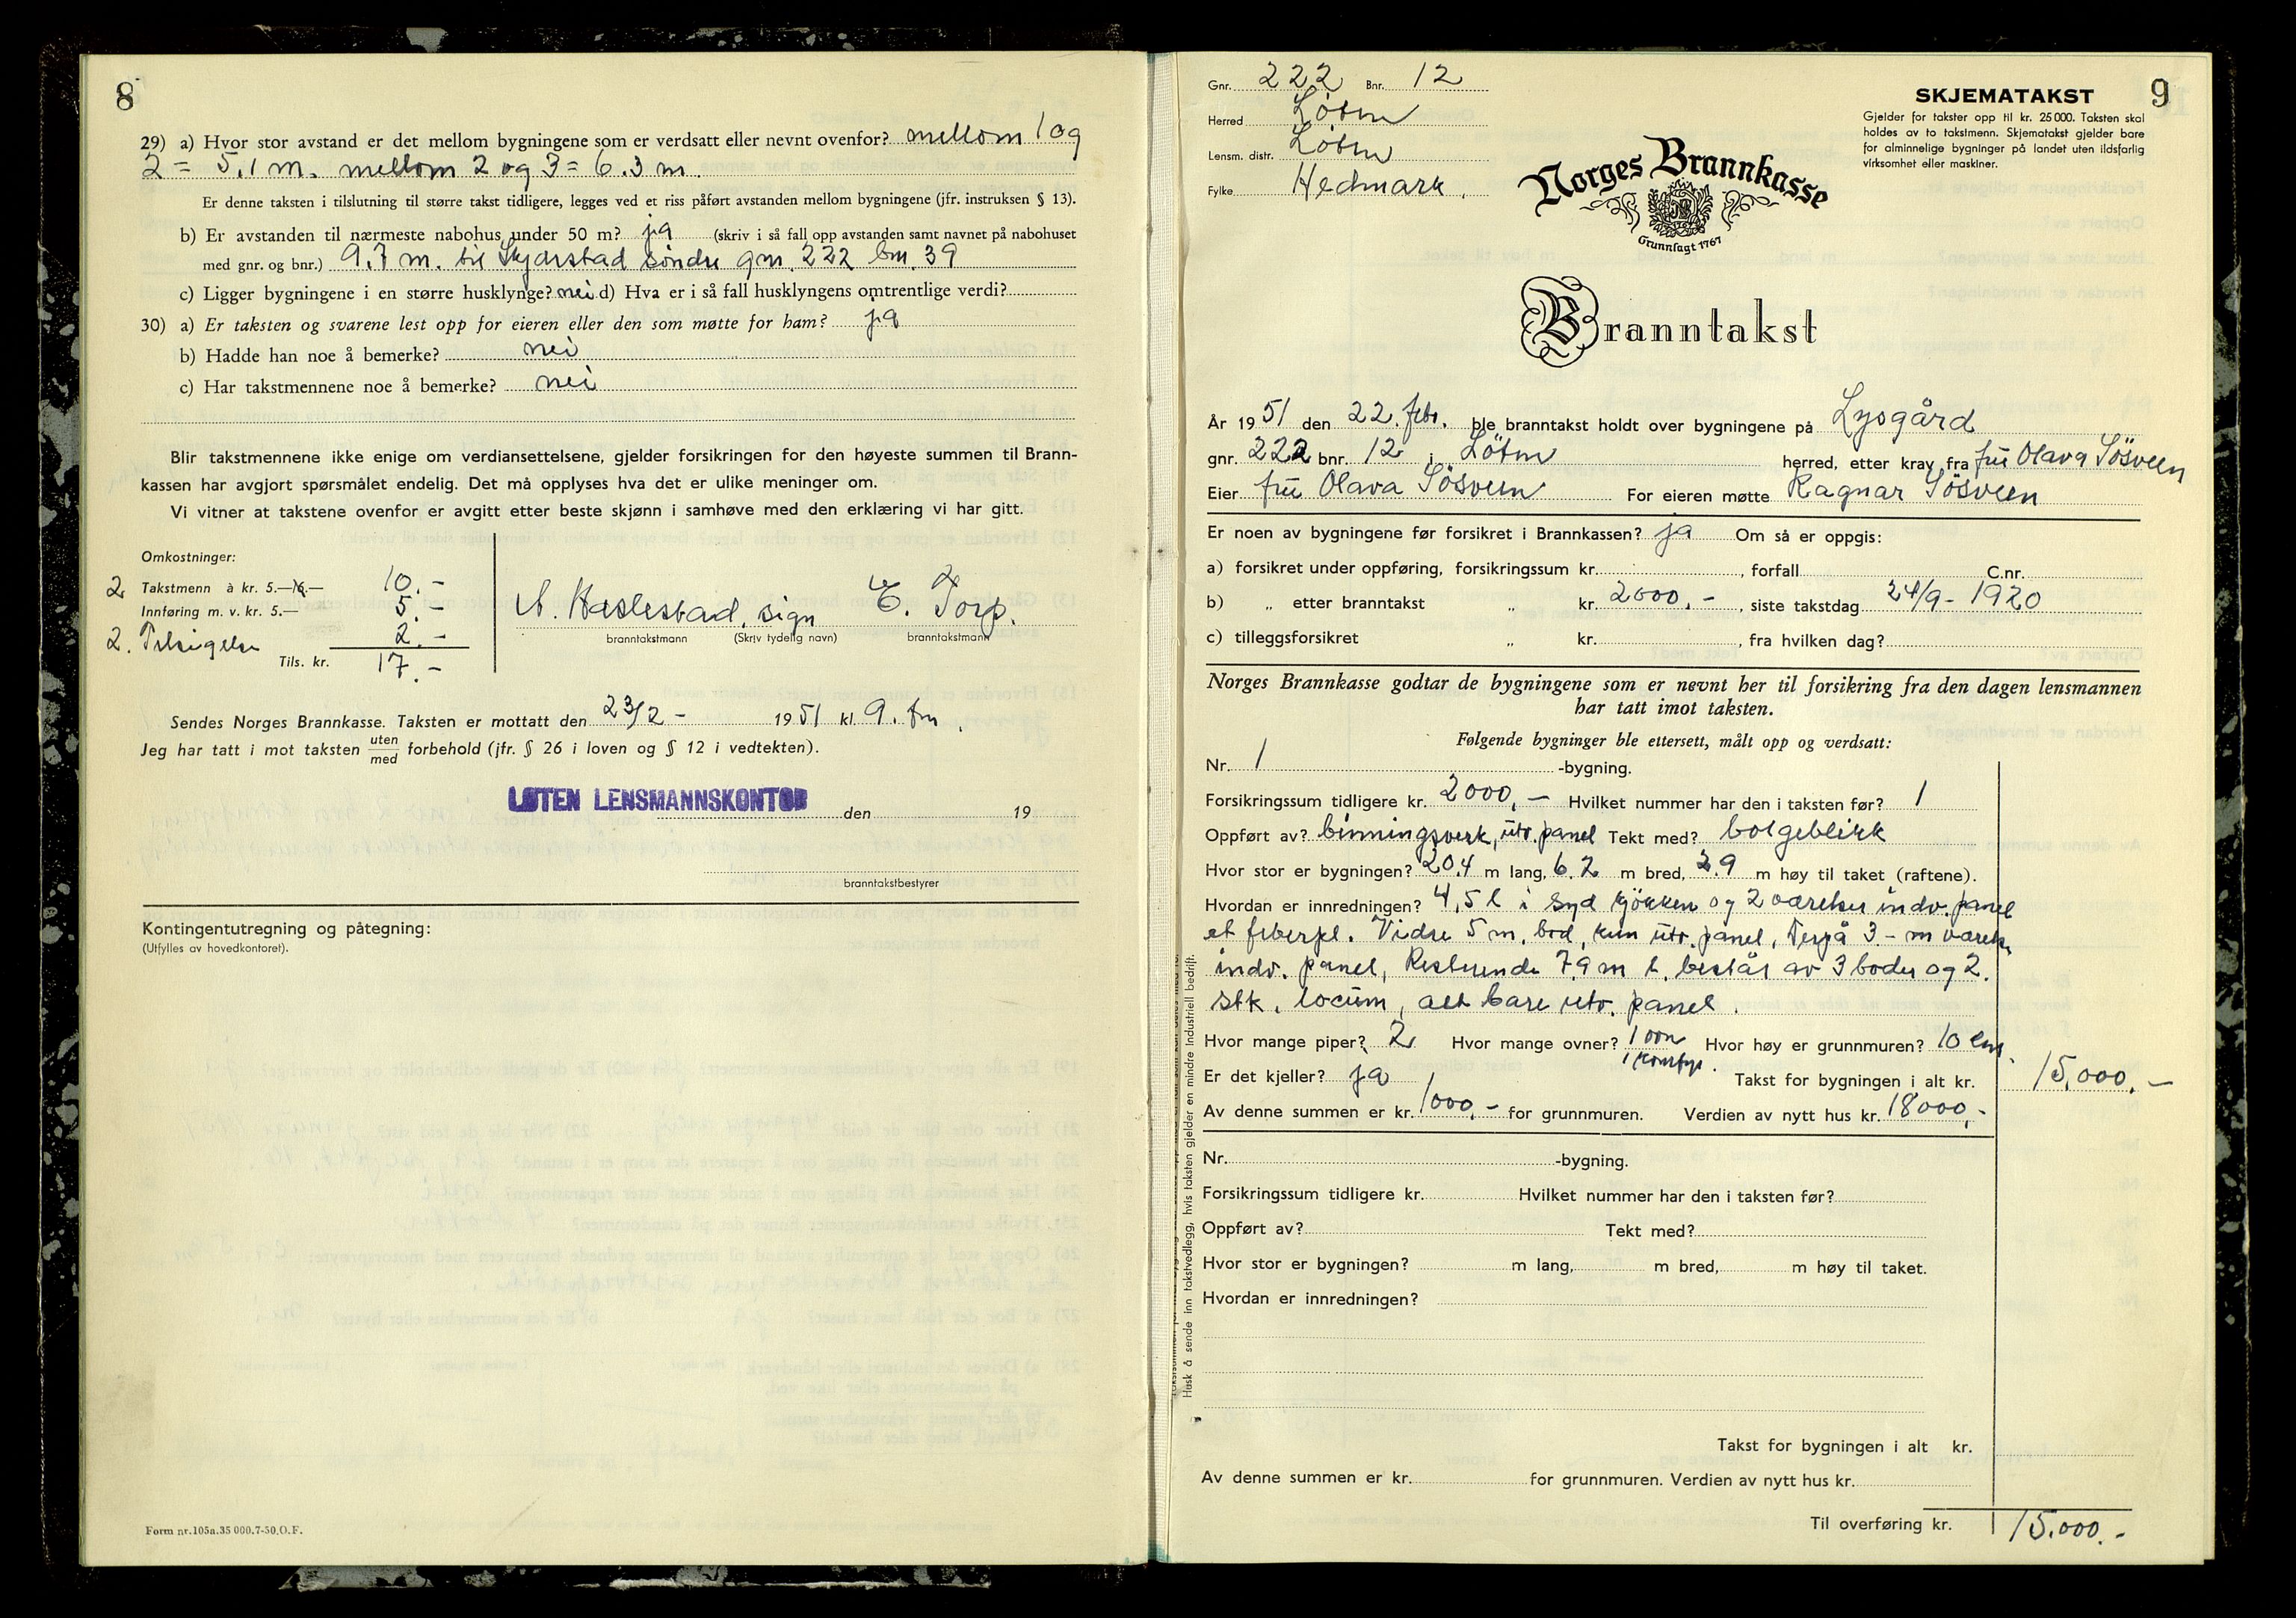 8
29) a) Hvor stor avstand er det mellom bygningene som er verdsatt eller nevnt ovenfor? mellom 1 og
2 = 5,1 m. mellom 2 og 3 = 6.3 m.
Er denne taksten i tilslutning til større takst tidligere, legges ved et riss påført avstanden mellom bygningene (jfr. instruksen § 13).
b) Er avstanden til nærmeste nabohus under 50 m? ja (skriv i så fall opp avstanden samt navnet på nabohuset
med gnr. og bnr.) 9.7 m. til Skjærstad söndre gnr. 222 bnr. 39
c) Ligger bygningene i en større husklynge? nei d) Hva er i så fall husklyngens omtrentlige verdi?
30) a) Er taksten og svarene lest opp for eieren eller den som møtte for ham? ja
b) Hadde han noe å bemerke? nei
c) Har takstmennene noe å bemerke? nei
Blir takstmennene ikke enige om verdiansettelsene, gjelder forsikringen for den høyeste summen til Brann-
kassen har avgjort spørsmålet endelig. Det må opplyses hva det er ulike meninger om.
Vi vitner at takstene ovenfor er avgitt etter beste skjønn i samhøve med den erklæring vi har gitt.
Omkostninger:
2 Takstmenn à kr. 5.— 10.-
Innføring m. v. kr. 5.— 5.-
2. Tilsigelse 2.-
Tils. kr. 17.-
A. Haslestad. sign E. Torp.
branntakstmann (Skriv tydelig navn) branntakstmann
Sendes Norges Brannkasse. Taksten er mottatt den 23/2 - 1951 kl. 9. fm.
Jeg har tatt i mot taksten uten/med forbehold (jfr. § 26 i loven og § 12 i vedtekten).
LØTEN LENSMANNSKONTOR den 19
branntakstbestyrer
Kontingentutregning og påtegning:
(Utfylles av hovedkontoret).
Form nr. 105a. 35 000. 7-50. O. F.
9
Gnr. 222 Bnr. 12
Herred Löten
Lensm. distr. Löten
Fylke Hedmark.
SKJEMATAKST
Gjelder for takster opp til kr. 25 000. Taksten skal
holdes av to takstmenn. Skjematakst gjelder bare
for alminnelige bygninger på landet uten ildsfarlig
virksomhet eller maskiner.
Norges Brannkasse
Grunnlagt 1767
Branntakst
År 1951 den 22. febr. ble branntakst holdt over bygningene på Lysgård
gnr. 222 bnr. 12 i Löten herred, etter krav fra fru Olava Sösveen
Eier fru Olava Sösveen For eieren møtte Ragnar Sösveen
Er noen av bygningene før forsikret i Brannkassen? ja Om så er oppgis:
a) forsikret under oppføring, forsikringssum kr. , forfall C.nr.
b) „ etter branntakst „ kr. 2000.- , siste takstdag 24/9 - 1920
c) tilleggsforsikret „ kr. , fra hvilken dag?
Norges Brannkasse godtar de bygningene som er nevnt her til forsikring fra den dagen lensmannen
har tatt imot taksten.
Følgende bygninger ble ettersett, målt opp og verdsatt:
Nr. 1 -bygning.
Forsikringssum tidligere kr. 2000,- Hvilket nummer har den i taksten før? 1
Oppført av? binningsverk, utv. panel Tekt med? bolgeblikk
Hvor stor er bygningen? 20,4 m lang, 6.2 m bred, 2.9 m høy til taket (raftene).
Hvordan er innredningen? 4,5 l i syd kjökken og 2 værelser indv. panel
et fiberpl. Vidre 5 m. bod, kun utv. panel, Derpå 3 - m værelse
indv. panel, Resterende 7,9 m l. består av 3 boder og 2.
stk. locum, alt bare utv. panel.
Hvor mange piper? 2 Hvor mange ovner? 1 ovn 1 komfyr. Hvor høy er grunnmuren? 10 cm.
Er det kjeller? ja Takst for bygningen i alt kr. 15.000.-
Av denne summen er kr. 1000,- for grunnmuren. Verdien av nytt hus kr. 18000,-
Nr. -bygning.
Forsikringssum tidligere kr. Hvilket nummer har den i taksten før?
Oppført av? Tekt med?
Hvor stor er bygningen? m lang, m bred, m høy til taket.
Hvordan er innredningen?
Takst for bygningen i alt kr.
Av denne summen er kr. for grunnmuren. Verdien av nytt hus kr.
Til overføring kr. 15.000.-
Husk å sende inn takstvedlegg, hvis taksten gjelder en mindre industriell bedrift.